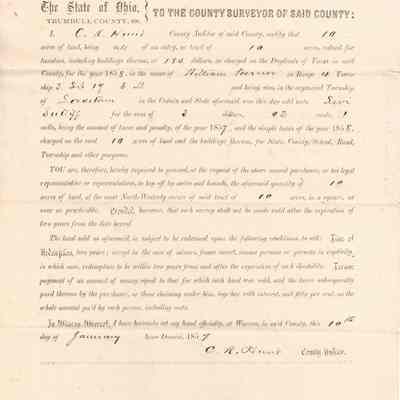 The State of Ohio,
TRUMBULL COUNTY, SS.
TO THE COUNTY SURVEYOR OF SAID COUNTY:
I, C. R. Hunt County Auditor of said county, certify that 10
acres of land, being out of an entry, or tract of 10 acres, valued for
taxation, including buildings thereon, at 180 dollars, as charged on the Duplicate of Taxes in said
County, for the year 1858, in the name of William in Range 4 Town-
ship 2 and being situate, in the organized Township
of Lordstown in the County and State aforesaid was this day sold unto Levi
Sutliff for the sum of 2 dollars, 92 cents,
mills, being the amount of taxes and penalty, of the year 1857, and the simple taxes of the year 1858,
charged on the said 10 acres of land and the buildings thereon, for State, County, School, Road,
Township and other purposes.
YOU are, therefore, hereby required to proceed, at the request of the above named purchaser, or his legal
representative or representatives, to lay off by metes and bounds, the aforesaid quantity of 10
acres of land, at the most North-Westerly corner of said tract of 10 acres, in a square, as
near as practicable. Provided, however, that such survey shall not be made until after the expiration of
two years from the date hereof.
The land sold as aforesaid, is subject to be redeemed upon the following conditions, to wit: Time of
Redemption, two years; except in the case of infants, femes covert, insane persons or persons in captivity,
in which case, redemption to be within two years from and after the expiration of such disability. Terms:
payment of an amount of money equal to that for which such land was sold, and the taxes subsequently
paid thereon by the purchaser, or those claiming under him, together with interest, and fifty per cent. on the
whole amount paid by such person, including costs.
In Witness Whereof, I have hereunto set my hand officially, at Warren, in said County, this 10th
day of January Anno Domini, 185
C. R. Hunt County Auditor.